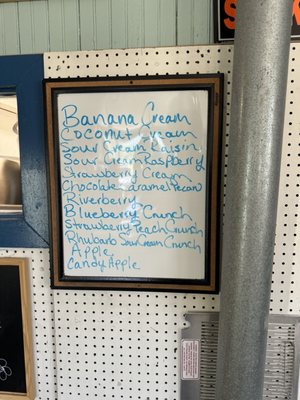 Banana Cream
Coconut Cream
Sour Cream Raisin
Sour Cream Raspberry
Strawberry Cream
Chocolate Caramel Pecan
Riverberry
Blueberry Crunch
Strawberry Peach Crunch
Rhubarb Sour Cream Crunch
Apple
Candy Apple